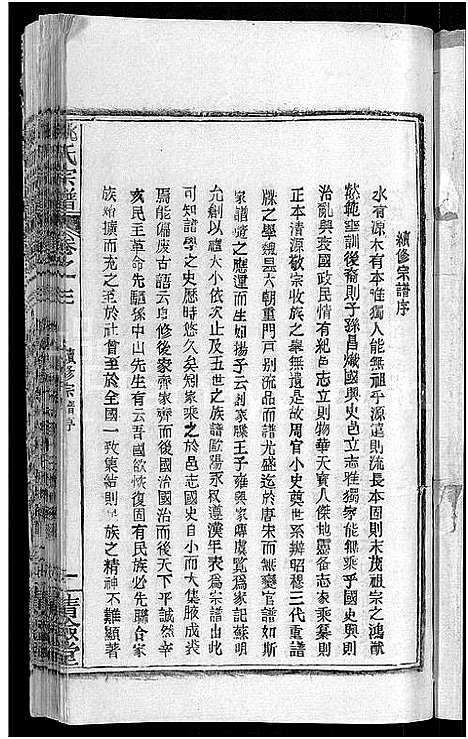 續修宗譜序
水有源木有本惟獨人能無祖乎源遠則流長本固則末茂祖宗之鴻猷
懿範垂訓後裔則子孫昌熾國與史邑立志雅獨家能無乘乎國史興則
治亂興衰國政民情有紀邑志立則物華天寶人傑地靈備志家乘纂則
正本清源敬宗收族之舉無遺是故周官小史奠世系辨昭穆三代重譜
牒之學魏晋六朝重門戸别流品而譜尤盛迄於唐宋而無變官譜如斯
家譜應運而生如揚子云剏家牒王子雍興家傳虞覧爲家記蘇明
允創以禮大小依次止及五世之族譜歐陽永叔遵漢年表爲宗譜由此
可知譜學之史歷時悠久矣知家乘之於邑志國史自小而大集腋成裘
焉能偏廢古語云自修後家齊家齊而後國治國治而後天下平誠然辛
亥民主革命先駆孫中山先生有云吾國欲恢復固有民族必先聯合家
族始擴而充之至於社會至於全國一致集結則民族之精神不難顯著
姚氏宗譜
卷之一
續修宗譜序
一
堂